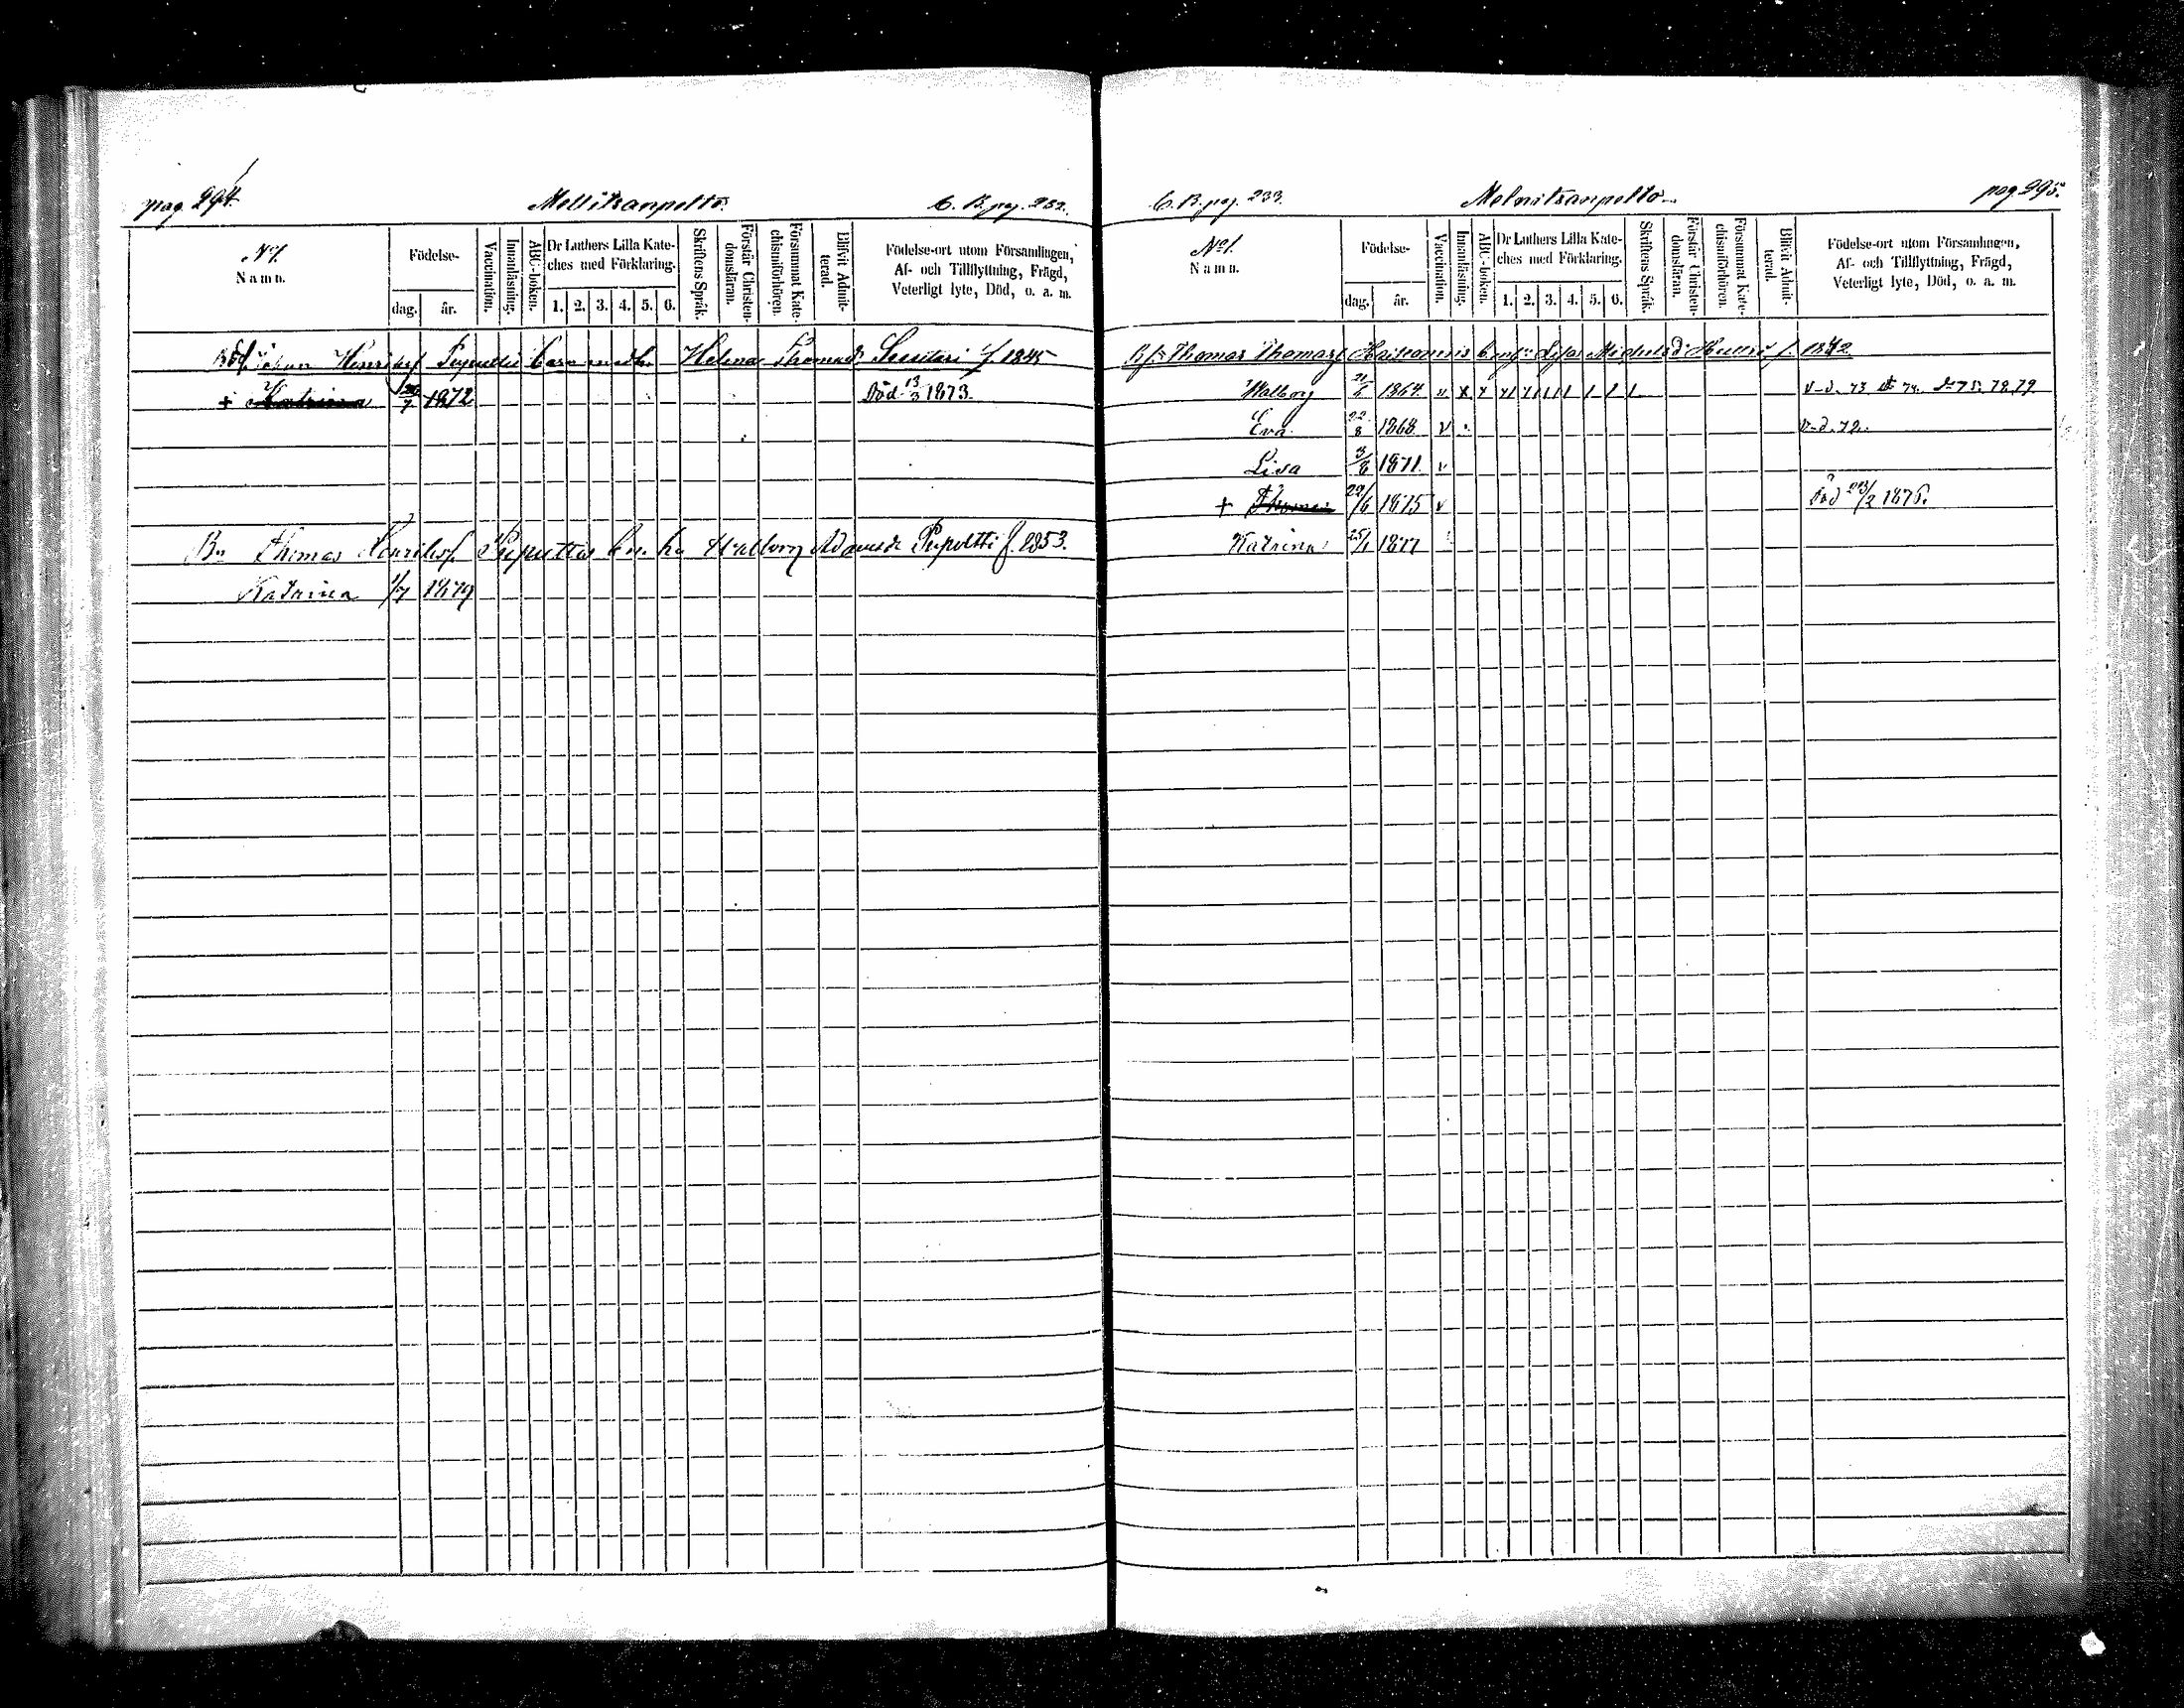 pag 294.
Mellitsanpelto.
C. B. pag. 232.
No 1.
Namn.
Födelse-
dag.
år.
Vaccination.
Innanläsning.
ABC-boken.
Dr Luthers Lilla Kate-
ches med Förklaring.
1. 2. 3. 4. 5. 6.
Skriftens Språk.
Förstår Christen-
domsläran.
Försummat Kate-
chismiförhören.
Blifvit Admit-
terad.
Födelse-ort utom Församlingen,
Af- och Tillflyttning, Frägd,
Veterligt lyte, Död, o. a. m.
Johan Henriksf Pupultis barn med h. Helena Thomasdr f. 1845
+ Katrina 7 1872 Död 13/3 1873.
Bn Thomas Henriksf Puputtis hu Walborg Adamsdr Pupultti f. 1853.
Katrina 1/7 1879
C. B. pag. 233.
Melnitsanpelto
pag. 295.
No 1.
Namn.
Födelse-
dag.
år.
Vaccination.
Innanläsning.
ABC-boken.
Dr Luthers Lilla Kate-
ches med Förklaring.
1. 2. 3. 4. 5. 6.
Skriftens Språk.
Förstår Christen-
domsläran.
Försummat Kate-
chismiförhören.
Blifvit Admit-
terad.
Födelse-ort utom Församlingen,
Af- och Tillflyttning, Frägd,
Veterligt lyte, Död, o. a. m.
Thomas Thomasf Lisa Michelsd f. 1842.
Walborg 21/6 1864. v x 73 74. 75. 78. 79
Eva 22/8 1868 v v-d. 79.
Lisa 3/8 1871 v
+ Thomas 29/6 1875 v Död 23/2 1876.
Katrina 25/1 1877